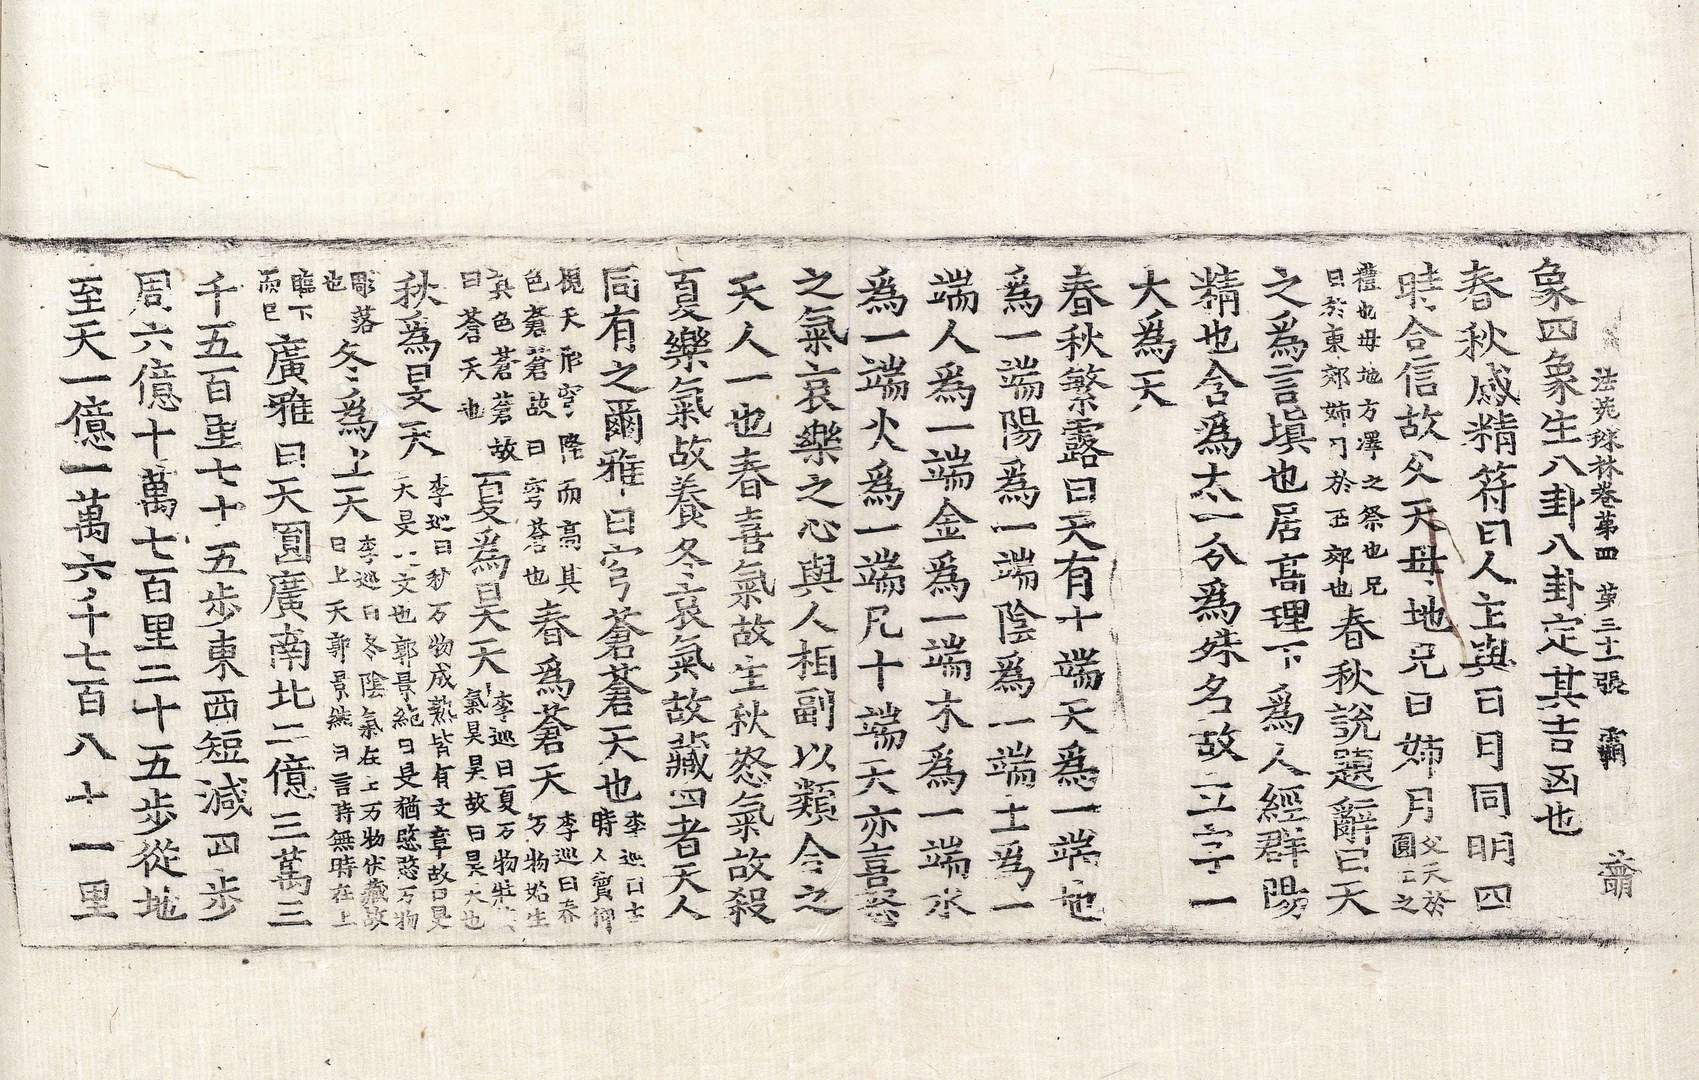 法苑珠林卷第四 第三十一張 覇
象四象生八卦八卦定其吉凶也
春秋感精符曰人主與日月同明四
時合信故父天母地兄日姊月父天於圓丘之
禮也母地方澤之祭也兄
日於東郊姊月於西郊也春秋說題辭曰天
之爲言塡也居高理下爲人經群陽
精也含爲太一分爲殊名故立字一
大爲天
春秋繁露曰天有十端天爲一端地
爲一端陽爲一端陰爲一端土爲一
端人爲一端金爲一端木爲一端水
爲一端火爲一端凡十端天亦喜怒
之氣哀樂之心與人相副以類合之
天人一也春喜氣故生秋怒氣故殺
夏樂氣故養冬哀氣故藏四者天人
同有之爾雅曰穹蒼蒼天也李巡曰古時人質仰
視天形穹隆而高其
色蒼蒼故曰穹蒼也春爲蒼天李巡曰春万物始生
其色蒼蒼故
曰蒼天也夏爲昊天李巡曰夏万物壯其氣昊昊故曰昊天也
秋爲旻天李巡曰秋万物成熟皆有文章故曰旻天旻文也郭景純曰旻猶愍愍万物
彫落
也冬爲上天李巡曰冬陰氣在上万物伏藏故曰上天郭景純曰言時無時在上
臨下
而已廣雅曰天圓廣南北二億三萬三
千五百里七十五步東西短減四步
周六億十萬七百里二十五步從地
至天一億一萬六千七百八十一里